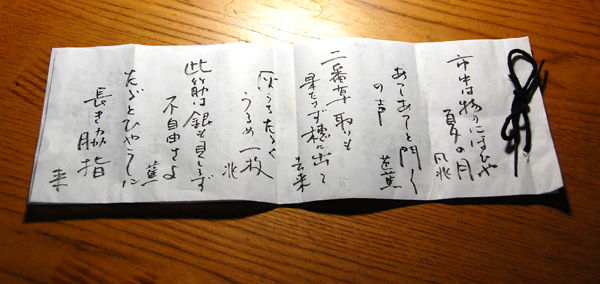 市中は物のにほひや
夏の月 凡兆
あつしあつしと門々
の声 芭蕉
二番草取りも
果たさず穂に出て 去来
灰うちたゝく
うるめ一枚 兆
此筋は銀も見しらず
不自由さよ 蕉
たゞとひやうしに
長き脇指 来